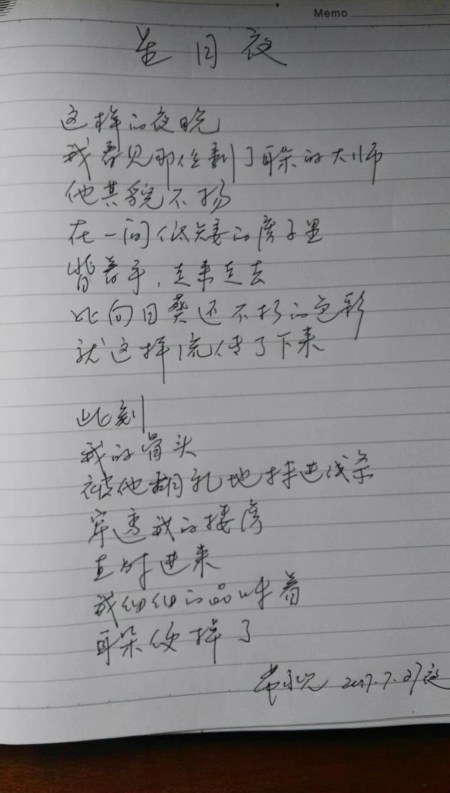 Memo
生日夜
这样的夜晚
我看见那位割了耳朵的大师
他其貌不扬
在一间低矮的房子里
背着手，走来走去
比向日葵还不朽的色彩
就这样流传了下来
此刻
我的骨头
被他胡乱地拌进线条
穿透我的楼房
直时进来
我细细的品味着
耳朵便掉了
2017.7.27夜